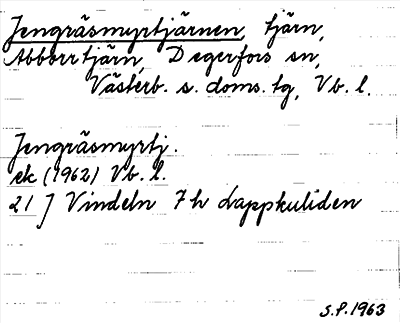 Jengräsmyrtjärnen, tjärn,
Abborrtjärn, Degerfors sn,
Västerb. s. doms. tg, Vb. l.
Jengräsmyrtj.
ek (1962) Vb. l.
21 J Vindeln 7 h Lappkuliden
S.P. 1963